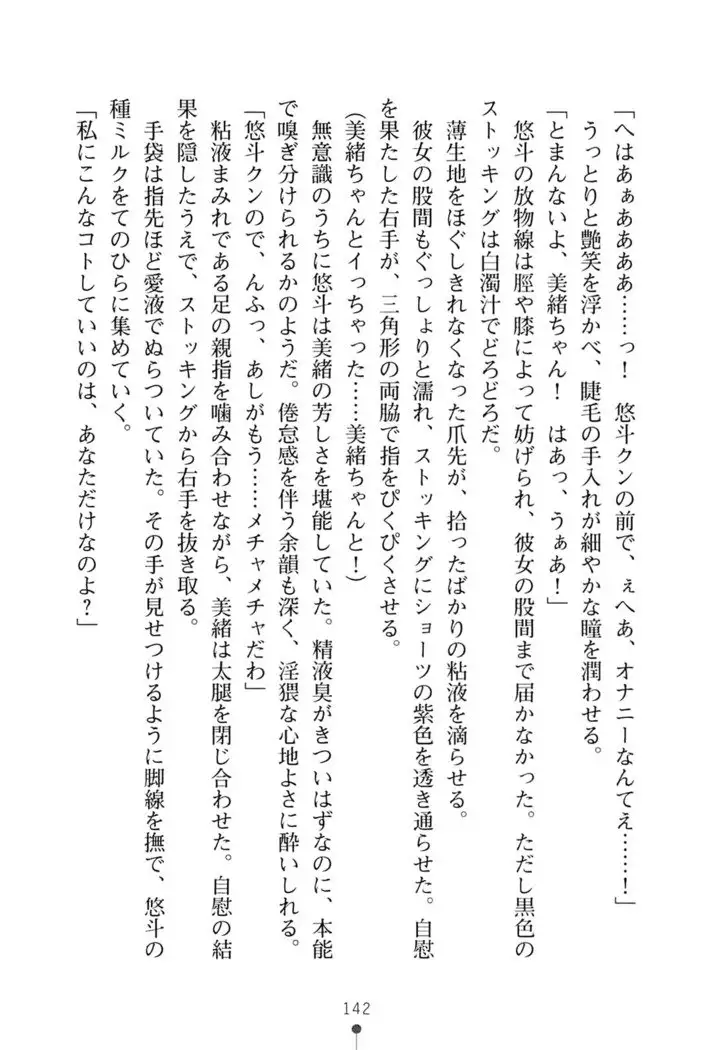 「へはあぁあああ……っ！　悠斗クンの前で、ぇへあ、オナニーなんてえ……！」
うっとりと艶笑を浮かべ、睫毛の手入れが細やかな瞳を潤わせる。
「とまんないよ、美緒ちゃん！　はあっ、うぁあ！」
悠斗の放物線は脛や膝によって妨げられ、彼女の股間まで届かなかった。ただし黒色の
ストッキングは白濁汁でどろどろだ。
薄生地をほぐしきれなくなった爪先が、拾ったばかりの粘液を滴らせる。
彼女の股間もぐっしょりと濡れ、ストッキングにショーツの紫色を透き通らせた。自慰
を果たした右手が、三角形の両脇で指をぴくぴくさせる。
（美緒ちゃんとイっちゃった……美緒ちゃんと！）
無意識のうちに悠斗は美緒の芳しさを堪能していた。精液臭がきついはずなのに、本能
で嗅ぎ分けられるかのようだ。倦怠感を伴う余韻も深く、淫猥な心地よさに酔いしれる。
「悠斗クンので、んふっ、あしがもう……メチャメチャだわ」
粘液まみれである足の親指を噛み合わせながら、美緒は太腿を閉じ合わせた。自慰の結
果を隠したうえで、ストッキングから右手を抜き取る。
手袋は指先ほど愛液でぬらついていた。その手が見せつけるように脚線を撫で、悠斗の
種ミルクをてのひらに集めていく。
「私にこんなコトしていいのは、あなただけなのよ？」
142